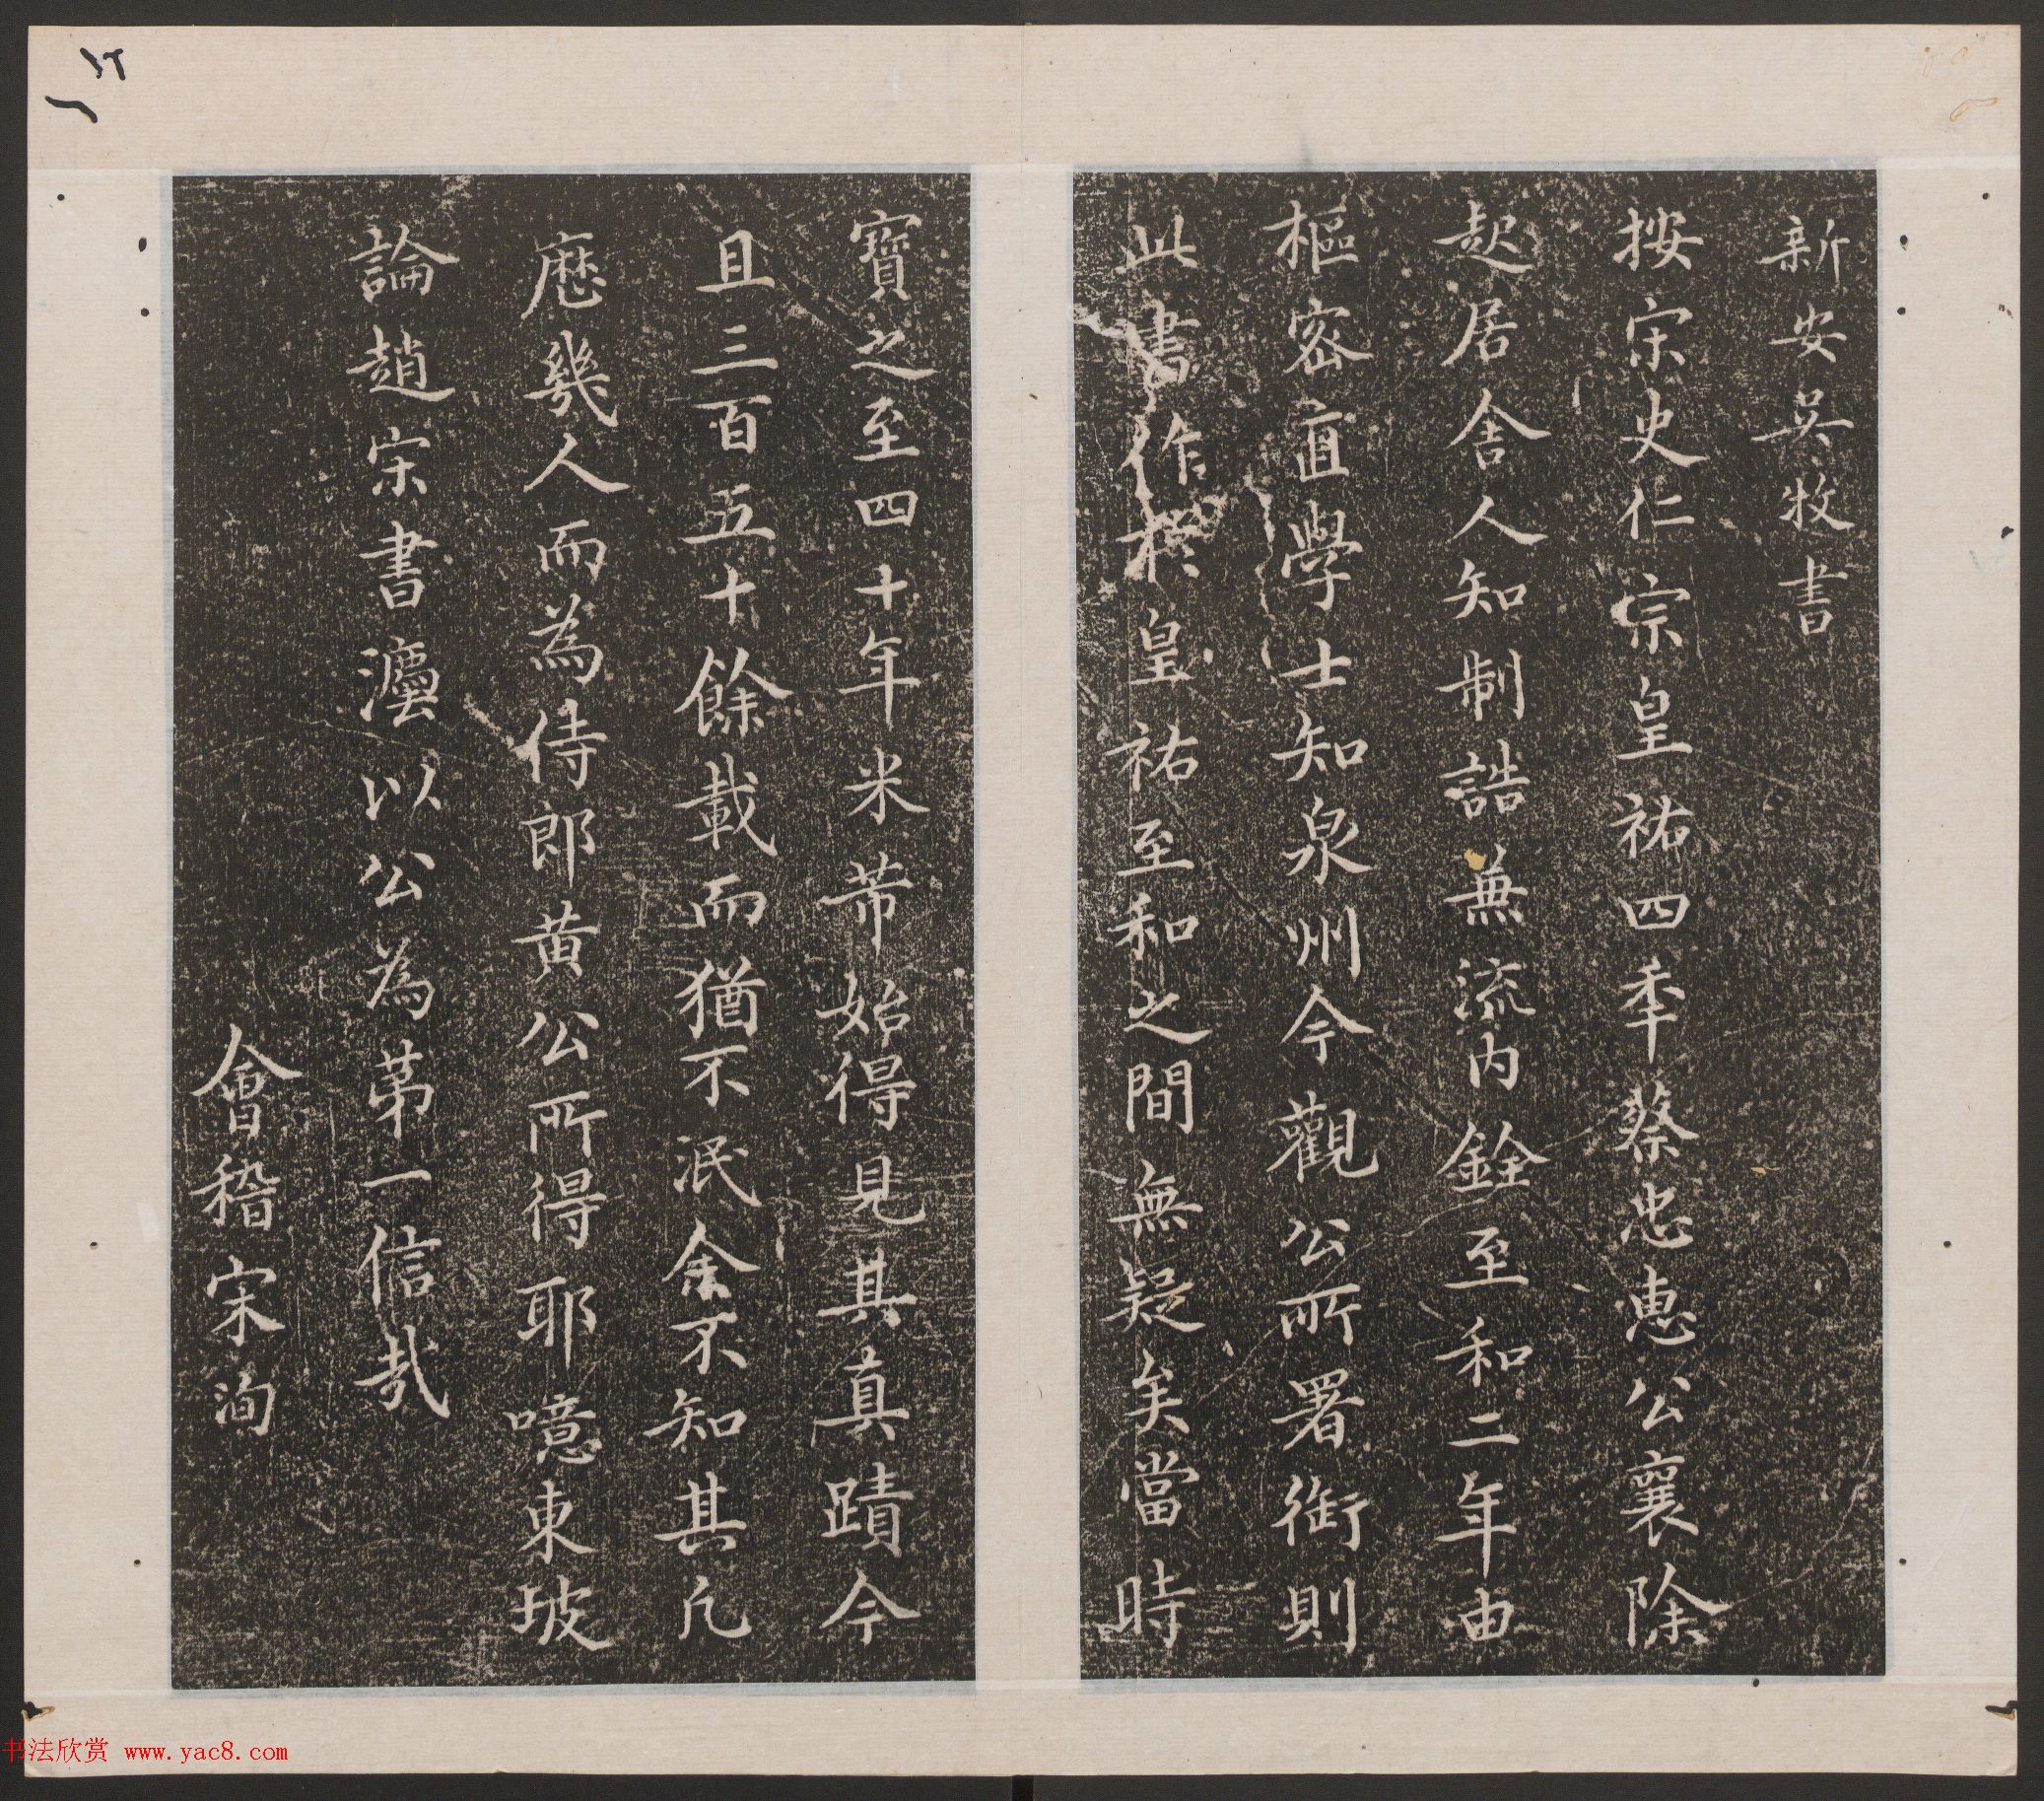 新安吳牧書
按宋史仁宗皇祐四秊蔡忠惠公襄除
起居舍人知制誥兼流内銓至和二年由
樞密直學士知泉州今觀公所署銜則
此書作於皇祐至和之間無疑矣當時
寶之至四十年米芾始得見其真蹟今
且三百五十餘載而猶不泯余不知其凡
歷幾人而為侍郎黄公所得耶噫東坡
論趙宋書灋以公為第一信哉
會稽宋洵
书法欣赏 www.yac8.com